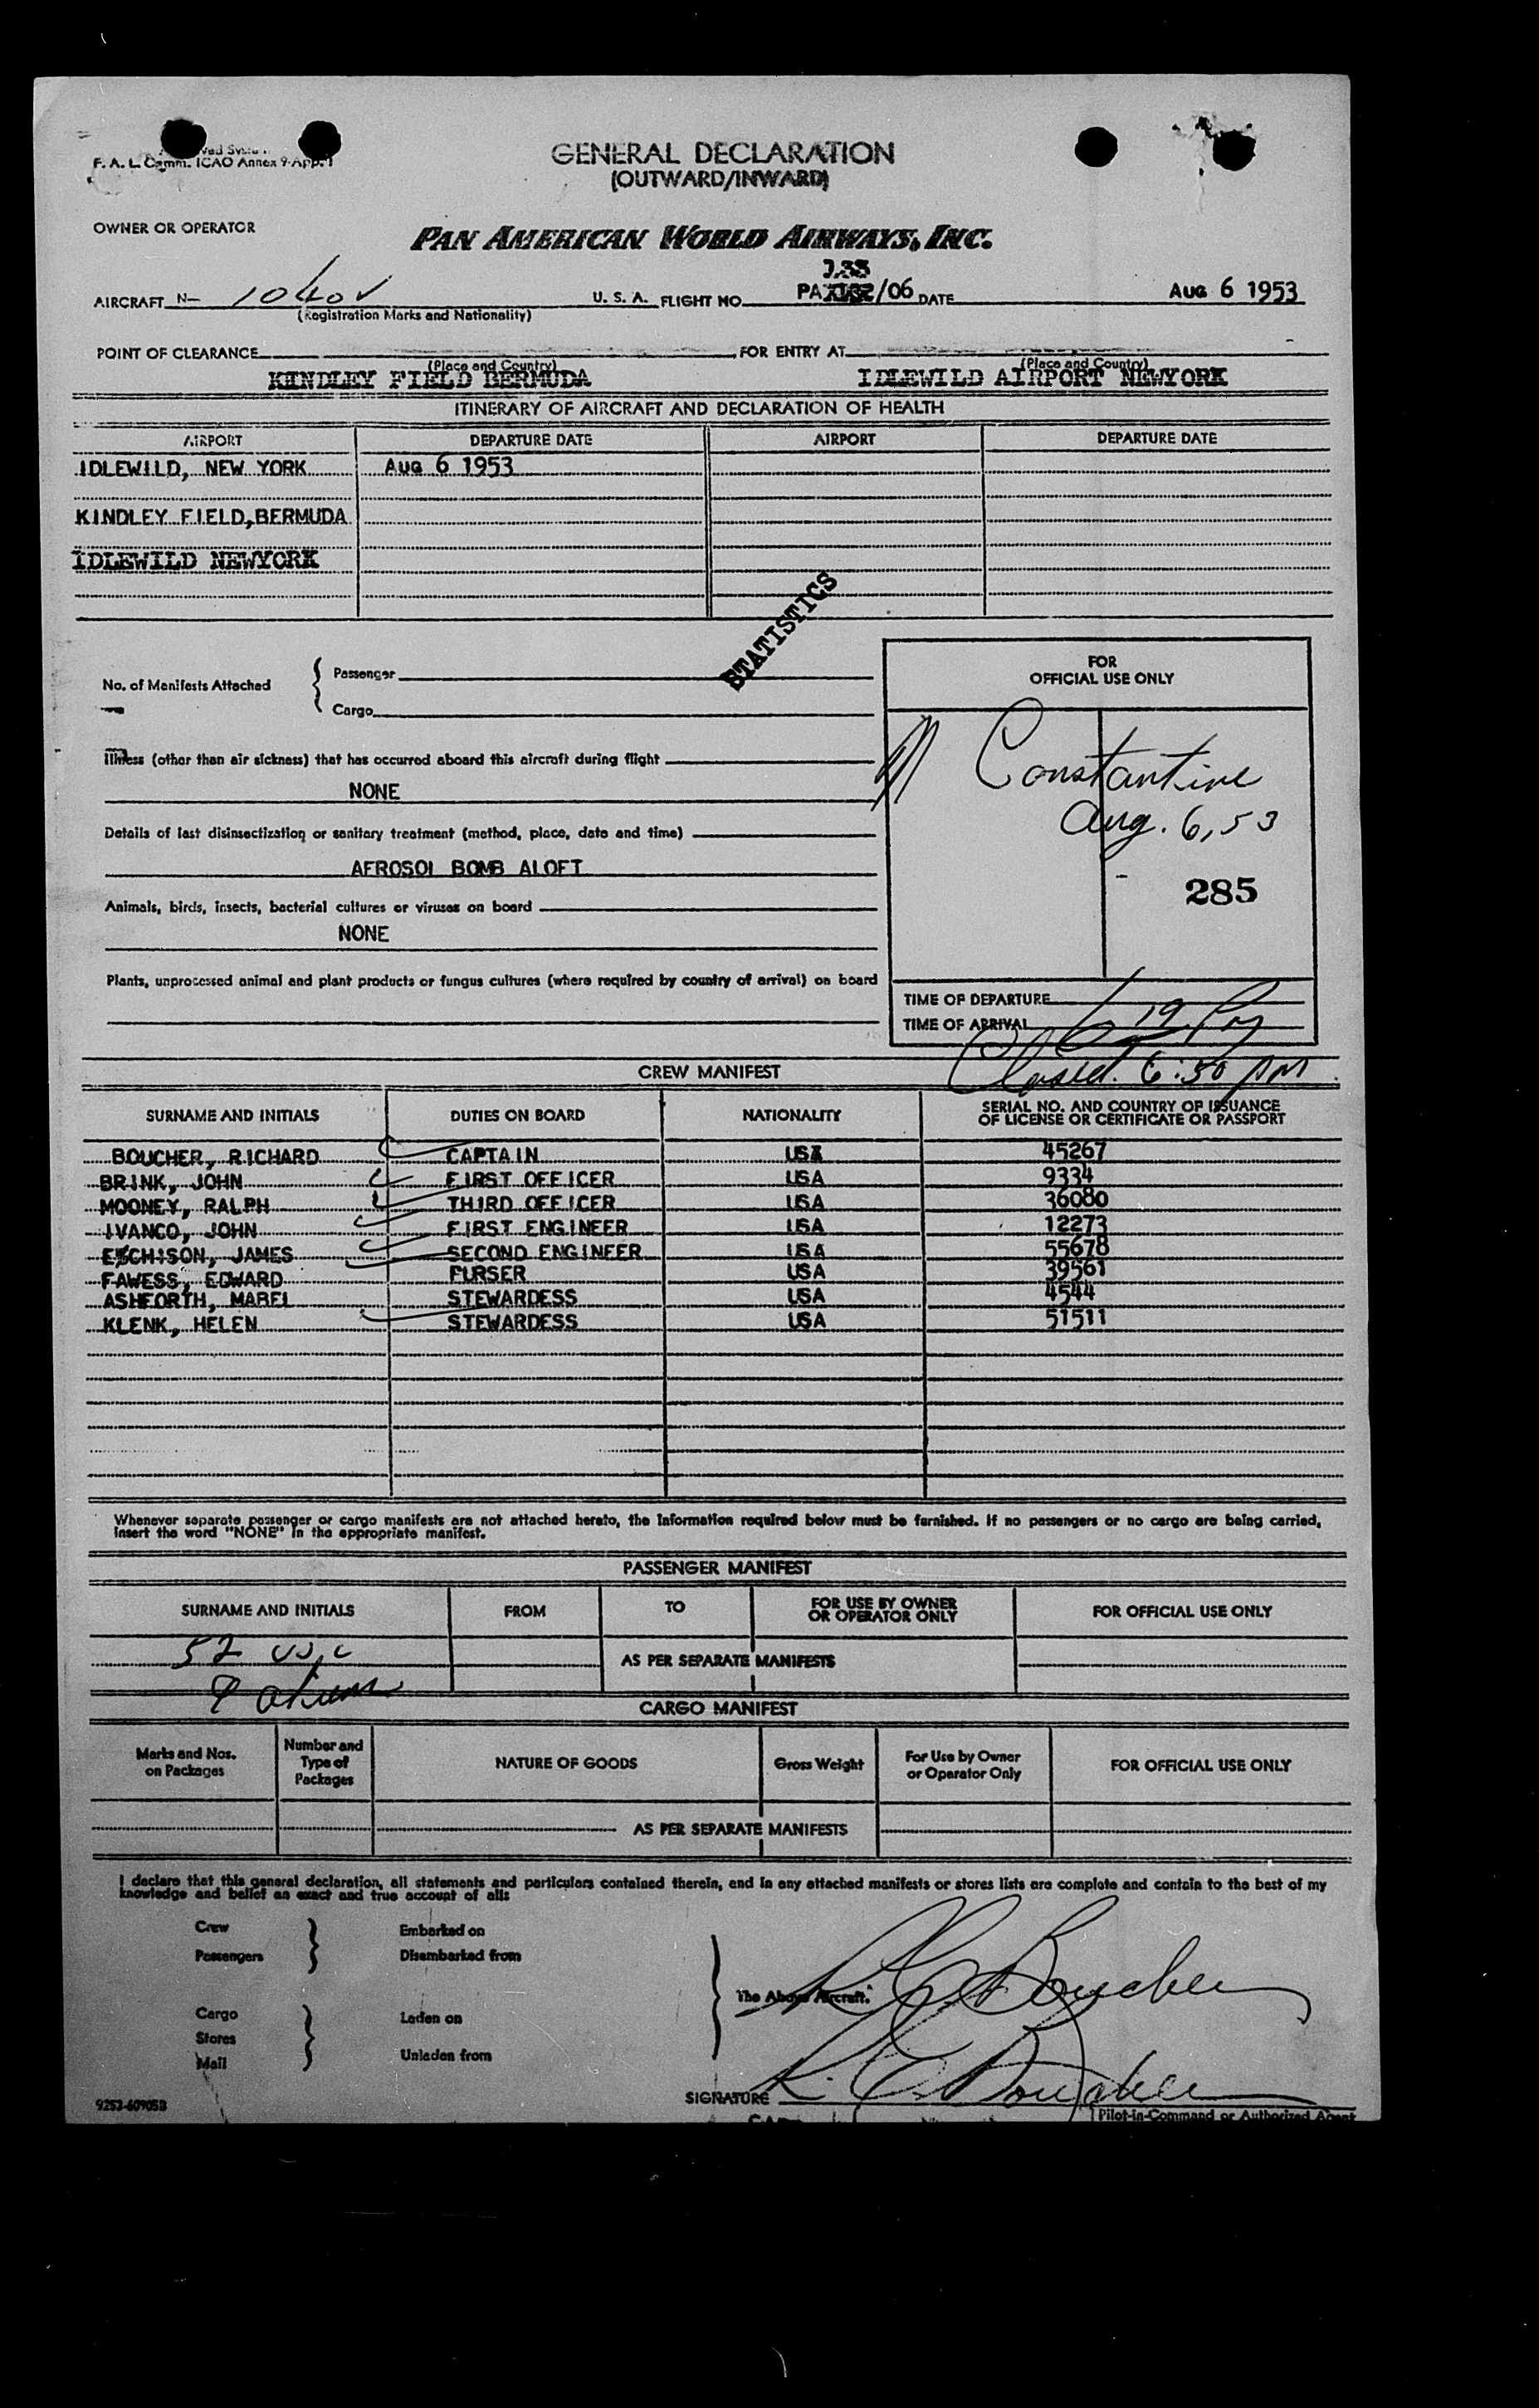 F. A. L. Comm. ICAO Annex 9-App. 1
GENERAL DECLARATION
(OUTWARD/INWARD)
OWNER OR OPERATOR
PAN AMERICAN WORLD AIRWAYS, INC.
AIRCRAFT N- 1040V U. S. A. FLIGHT NO. PA 133/06 DATE AUG 6 1953
(Registration Marks and Nationality)
POINT OF CLEARANCE FOR ENTRY AT
(Place and Country) (Place and Country)
KINDLEY FIELD BERMUDA IDLEWILD AIRPORT NEWYORK
ITINERARY OF AIRCRAFT AND DECLARATION OF HEALTH
AIRPORT DEPARTURE DATE AIRPORT DEPARTURE DATE
IDLEWILD, NEW YORK AUG 6 1953
KINDLEY FIELD, BERMUDA
IDLEWILD NEWYORK
STATISTICS
No. of Manifests Attached
Passenger
Cargo
FOR
OFFICIAL USE ONLY
Illness (other than air sickness) that has occurred aboard this aircraft during flight
NONE
Constantine
Aug. 6, 53
Details of last disinsectization or sanitary treatment (method, place, date and time)
AEROSOL BOMB ALOFT
285
Animals, birds, insects, bacterial cultures or viruses on board
NONE
Plants, unprocessed animal and plant products or fungus cultures (where required by country of arrival) on board
TIME OF DEPARTURE
TIME OF ARRIVAL 6 19 PM
Closed. 6:50 PM
CREW MANIFEST
SURNAME AND INITIALS DUTIES ON BOARD NATIONALITY SERIAL NO. AND COUNTRY OF ISSUANCE OF LICENSE OR CERTIFICATE OR PASSPORT
BOUCHER, RICHARD CAPTAIN USA 45267
BRINK, JOHN FIRST OFFICER USA 9334
MOONEY, RALPH THIRD OFFICER USA 36080
IVANCO, JOHN FIRST ENGINEER USA 12273
JAMES SECOND ENGINEER USA 55678
FAWESS, EDWARD PURSER USA 39561
ASHFORTH, MABEL STEWARDESS USA 4544
KLENK, HELEN STEWARDESS USA 51511
Whenever separate passenger or cargo manifests are not attached hereto, the information required below must be furnished. If no passengers or no cargo are being carried,
insert the word "NONE" in the appropriate manifest.
PASSENGER MANIFEST
SURNAME AND INITIALS FROM TO FOR USE BY OWNER OR OPERATOR ONLY FOR OFFICIAL USE ONLY
52 USC
AS PER SEPARATE MANIFESTS
CARGO MANIFEST
Marks and Nos. on Packages Number and Type of Packages NATURE OF GOODS Gross Weight For Use by Owner or Operator Only FOR OFFICIAL USE ONLY
AS PER SEPARATE MANIFESTS
I declare that this general declaration, all statements and particulars contained therein, and in any attached manifests or stores lists are complete and contain to the best of my
knowledge and belief an exact and true account of all:
Crew Embarked on
Passengers Disembarked from
The Above Aircraft.
Cargo Laden on
Stores
Mail Unladen from
SIGNATURE R. E. Boucher
9253-60905B
Pilot-in-Command or Authorized Agent